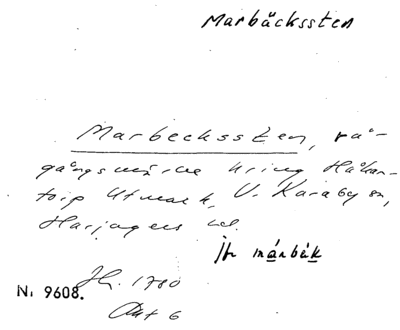 Marbäckssten
Marbeckssten, rå-
gångsmärke kring Håkan-
torp Utmark, V. Karaby sn,
Harjagers hd.
jfr màrbàk
Jh. 1780
N: 9608.
Akt 6